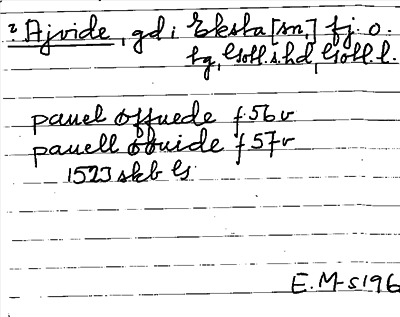 ? Ajvide, gd i Eksta [sn.] fj. o.
fg, Gotl. s. hd, Gotl. l.
pauel offuede f. 56 v
pauell offuide f 57 v
1523 skb G
E. M-s 196